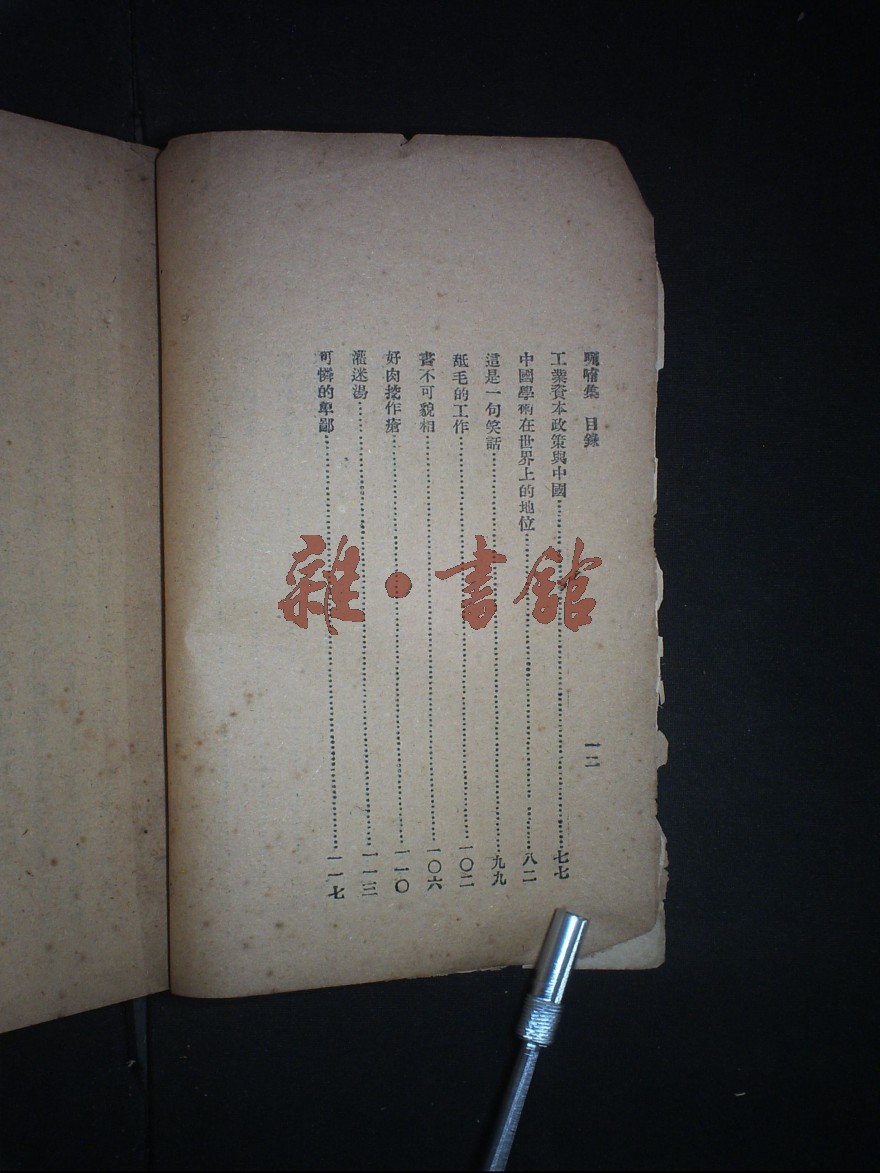 嘯集 目錄
工業資本政策與中國 七七
中國學術在世界上的地位 八二
這是一句笑話 九九
舐毛的工作 一〇二
書不可貌相 一〇六
好肉挖作瘡 一一〇
灌迷湯 一一三
可憐的卑鄙 一一七
雜·書館